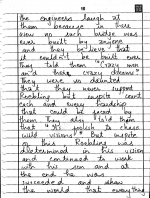 the engineers laugh at
them because in their
view no such bridge was
ever built by anyone
and they believe that
it couldn't be built ever
they told them "crazy men
and their crazy dreams"
they were so dangerous
that they never support
Roebling but inspite
each and every hardship
that could be faced by
them they also told them
that "its foolish to chase
wild visions" but inspite
of this Roebling was
determined in his vision
and continued to work
with his son and at
the end he was
succeeded and show
the world that everything